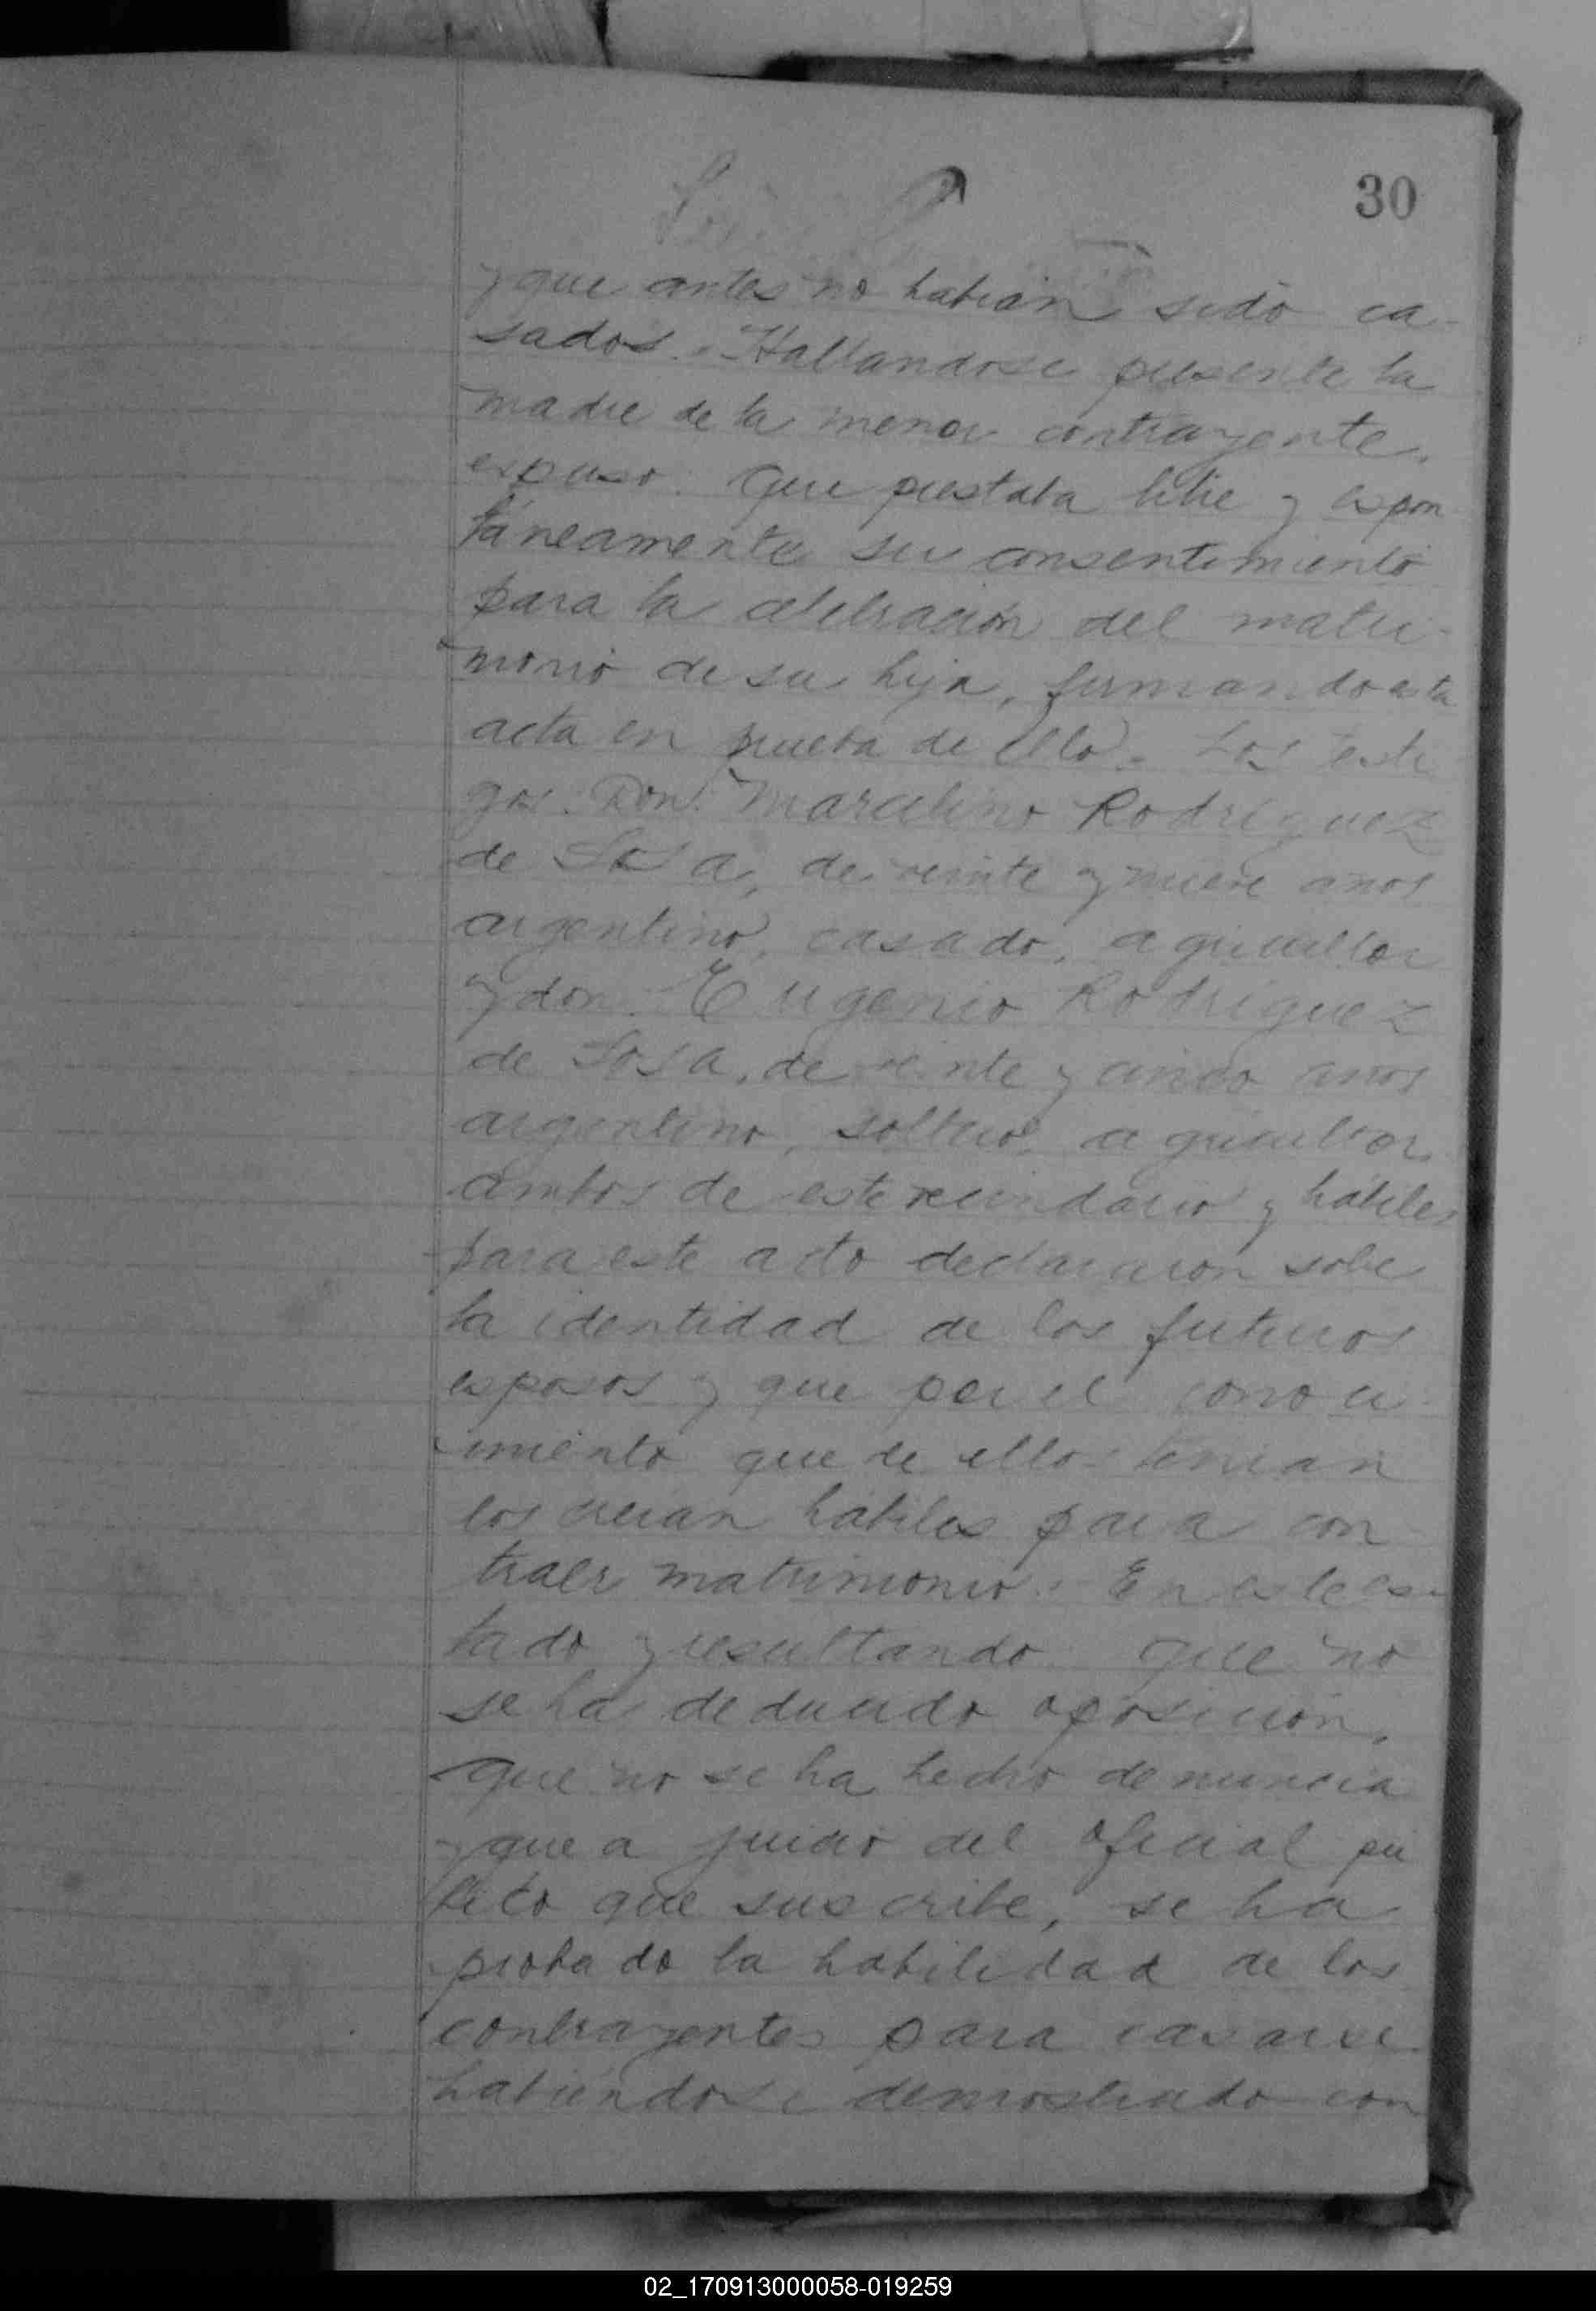 30
y que antes no habian sido ca-
sados. Hallandose presente la
madre de la menor contrayente,
expuso. Que prestaba libre y espon
táneamente su consentimiento
para la celebración del matri-
monio de su hija, firmando esta
acta en prueba de ello. Los testi
gos. Don. Marcelino Rodriguez
de Sosa, de veinte y nueve años
argentino, casado, agricultor
y don. Eugenio Rodriguez
de Sosa, de veinte y cinco años
argentino, soltero, agricultor,
ambos de este vecindario y hábiles
para este acto declararon sobre
la identidad de los futuros
esposos y que por el conoci-
miento que de ellos tenian
los creian habiles para con
traer matrimonio. En este es-
tado y resultando que no
se ha deducido oposicion,
que no se ha hecho denuncia
y que a juicio del oficial pú
blico que suscribe, se ha
probado la habilidad de los
contrayentes para casarse
habiéndose demostrado con
02_170913000058-019259